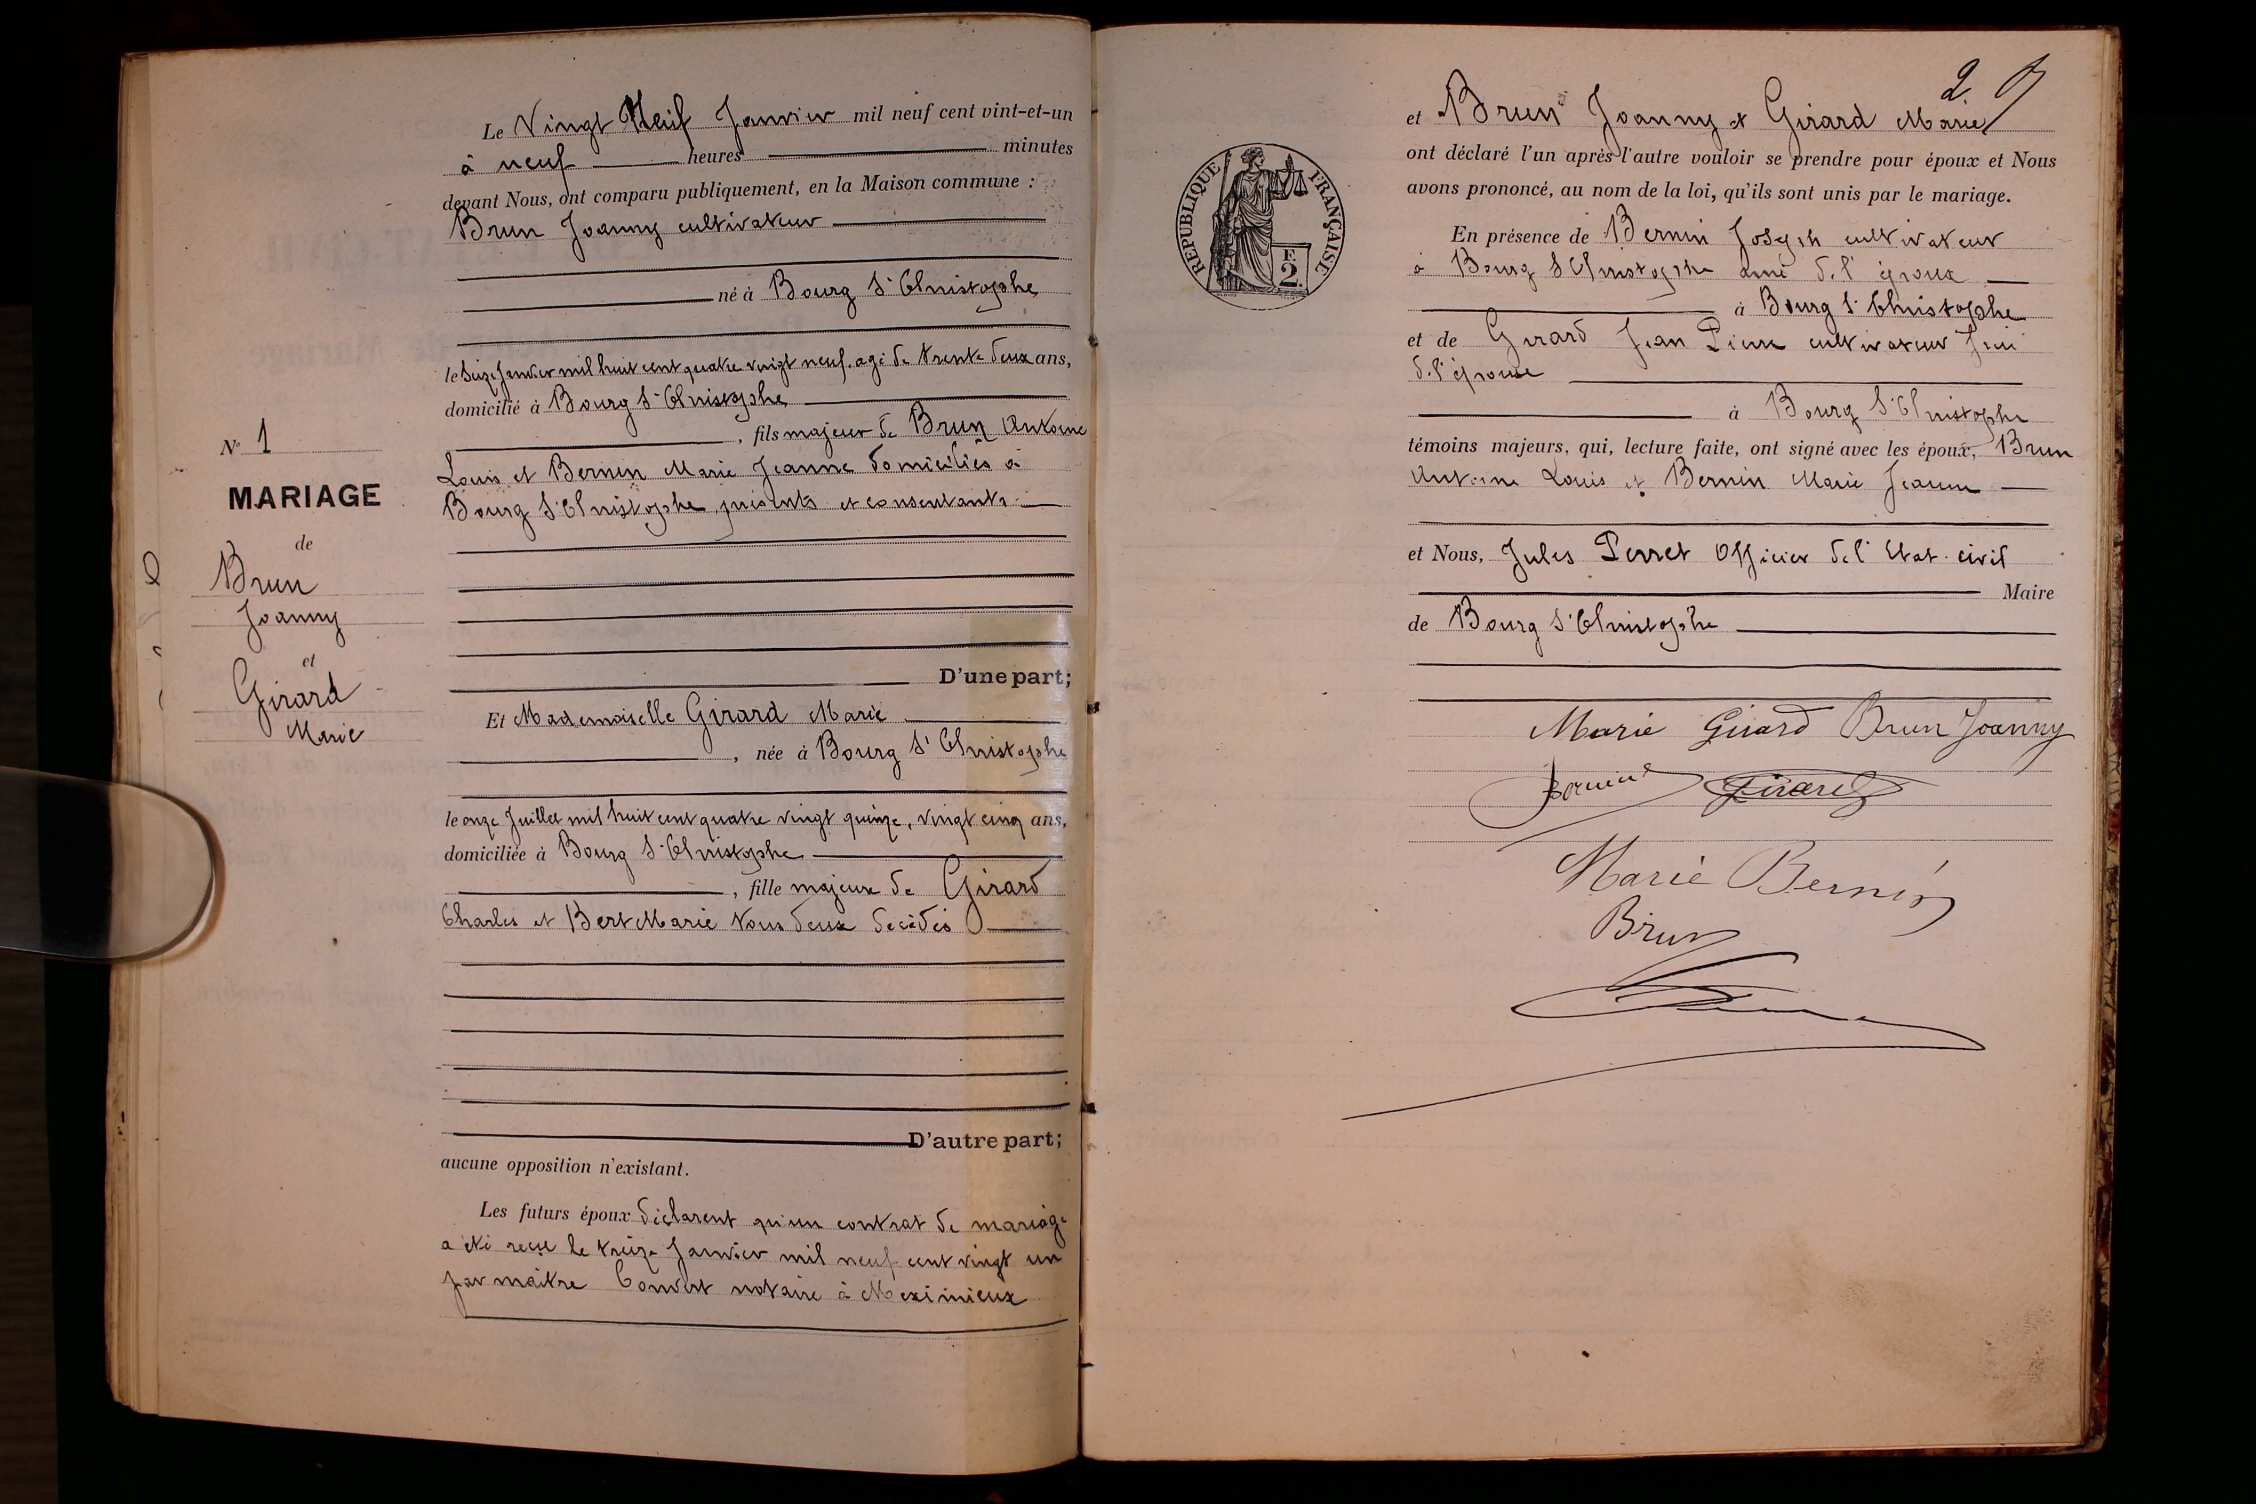 Le Vingt Neuf Janvier mil neuf cent vint-et-un
à neuf heures minutes
devant Nous, ont comparu publiquement, en la Maison commune :
Brun Joanny cultivateur
né à Bourg St Christophe
le seize Janvier mil huit cent quatre vingt neuf. agé de trente deux ans,
domicilié à Bourg St Christophe
, fils majeur de Brun Antoine
Louis et Bernin Marie Jeanne domiciliés à
Bourg St Christophe, présents et consentants
N° 1
MARIAGE
de
Brun
Joanny
et
Girard
Marie
D'une part;
Et Mademoiselle Girard Marie
, née à Bourg St Christophe
le onze Juillet mil huit cent quatre vingt quinze, vingt cinq ans,
domiciliée à Bourg St Christophe
, fille majeure de Girard
Charles et Bert Marie tous deux décédés
D'autre part;
aucune opposition n'existant.
Les futurs époux déclarent qu'un contrat de mariage
a été reçu le treize Janvier mil neuf cent vingt un
par maitre Convert notaire à Meximieux
2
RÉPUBLIQUE FRANÇAISE
F.
2.
et Brun Joanny et Girard Marie
ont déclaré l'un après l'autre vouloir se prendre pour époux et Nous
avons prononcé, au nom de la loi, qu'ils sont unis par le mariage.
En présence de Bernin Joseph cultivateur
à Bourg St Christophe ami de l'époux
à Bourg St Christophe
et de Girard Jean Pierre cultivateur
de l'épouse
à Bourg St Christophe
témoins majeurs, qui, lecture faite, ont signé avec les époux, Brun
Antoine Louis et Bernin Marie Jeanne
et Nous, Jules Perret Officier de l'Etat-civil
Maire
de Bourg St Christophe
Marie Girard Brun Joanny
Bernin Girard
Marie Bernin
Brun